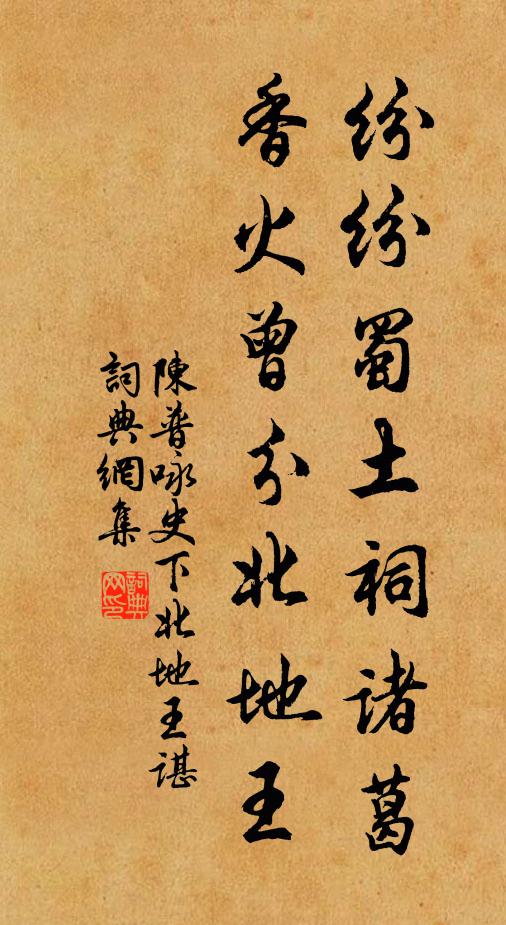 紛紛蜀土祠諸葛
香火曾分北地王
陳普咏史下北地王諶
詞典網集
詞典网印